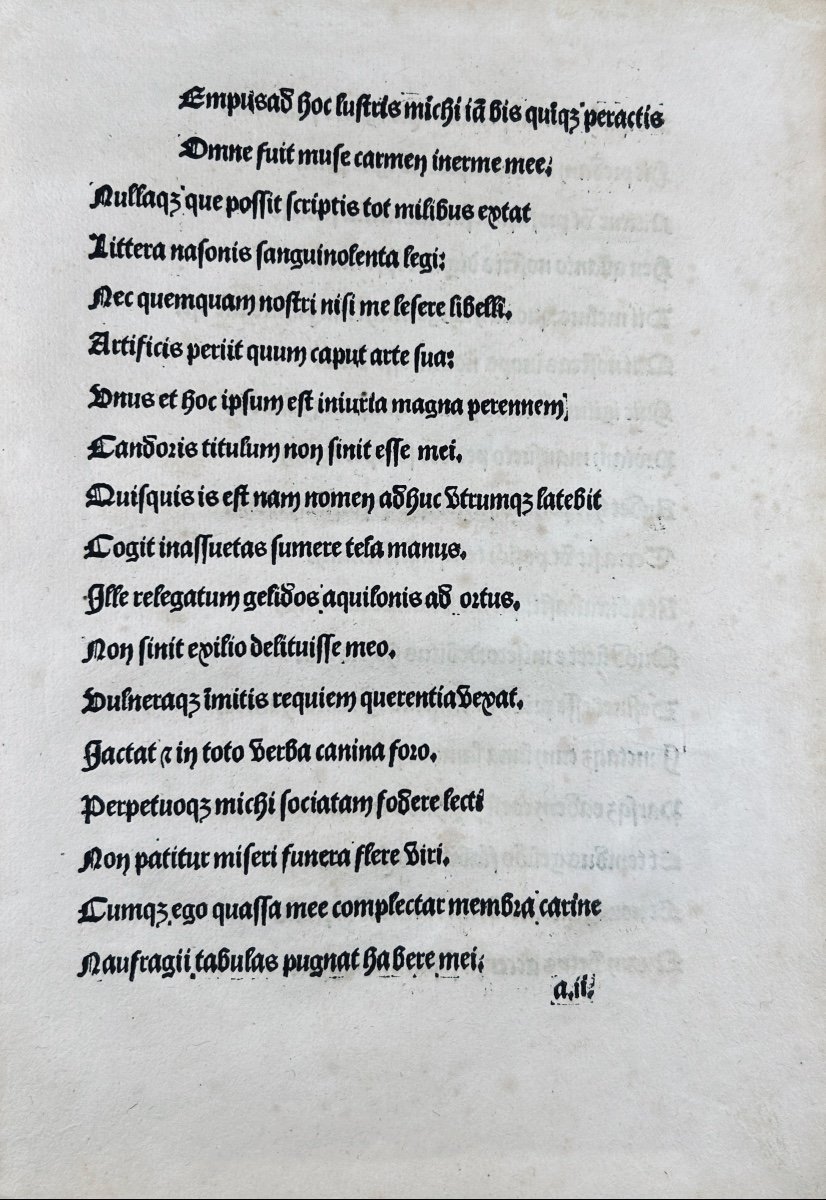 Empusad hoc lustris michi iā bis quīqꝫ peractis
Omne fuit muse carmen inerme mee:
Nullaqꝫ que possit scriptis tot milibus extat
Littera nasonis sanguinolenta legi:
Nec quemquam nostri nisi me lesere libelli.
Artificis periit quum caput arte sua:
Vnus et hoc ipsum est iniuria magna perennem
Candoris titulum non sinit esse mei.
Quisquis is est nam nomen adhuc vtrumqꝫ latebit
Cogit inassuetas sumere tela manus.
Ille relegatum gelidos aquilonis ad ortus.
Non sinit exilio delituisse meo.
Vulneraqꝫ īmitis requiem querentia vexat.
Jactat ⁊ in toto verba canina foro.
Perpetuoqꝫ michi sociatam fodere lecti
Non patitur miseri funera flere viri.
Cumqꝫ ego quassa mee complectar membra carine
Naufragii tabulas pugnat habere mei:
a.ii.